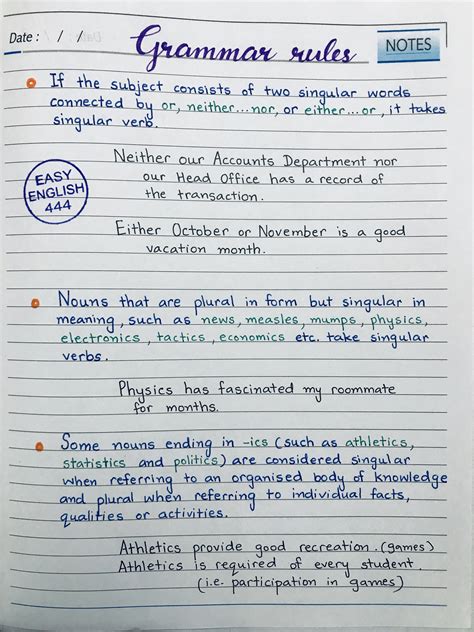 Date :   /   /
Grammar rules
NOTES
If the subject consists of two singular words
connected by or, neither...nor, or either...or, it takes
singular verb.
Neither our Accounts Department nor
our Head Office has a record of
the transaction.
EASY
ENGLISH
444
Either October or November is a good
vacation month.
Nouns that are plural in form but singular in
meaning, such as news, measles, mumps, physics,
electronics, tactics, economics etc. take singular
verbs.
Physics has fascinated my roommate
for months.
Some nouns ending in -ics (such as athletics,
statistics and politics) are considered singular
when referring to an organised body of knowledge
and plural when referring to individual facts,
qualities or activities.
Athletics provide good recreation. (games)
Athletics is required of every student.
(i.e. participation in games)